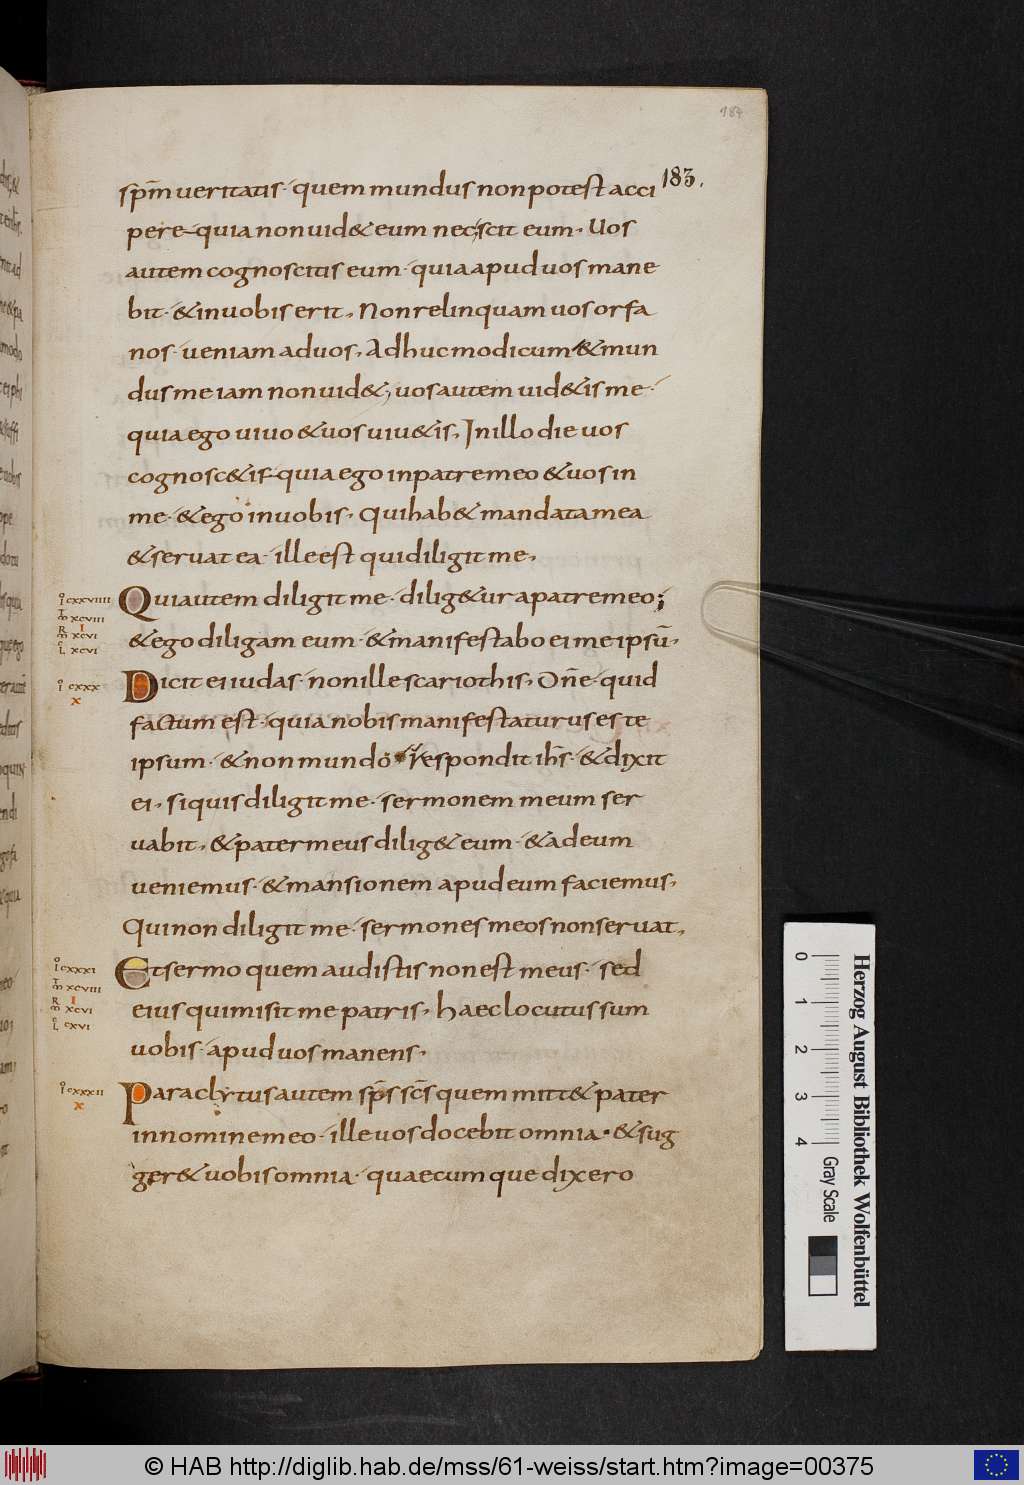 184
183.
sp̄m ueritatis· quem mundus non potest acci
pere quia non uid& eum nec scit eum. Uos
autem cognoscitis eum· quia apud uos mane
bit· & in uobis erit. Non relinquam uos orfa
nos· ueniam ad uos. Adhuc modicum & mun
dus me iam non uid&; uos autem uid&is me·
quia ego uiuo & uos uiu&is. In illo die uos
cognosc&is quia ego in patre meo & uos in
me· & ego in uobis. Qui hab& mandata mea
& seruat ea· ille est qui diligit me.
Qui autem diligit me· dilig&ur a patre meo;
& ego diligam eum· & manifestabo ei me ipsū.
Dicit ei iudas· non ille scariothis. Dn̄e· quid
factum est· quia nobis manifestaturus es te
ipsum· & non mundo respondit ih̄s· & dixit
ei. si quis diligit me· sermonem meum ser
uabit. & pater meus dilig& eum· & ad eum
ueniemus· & mansionem apud eum faciemus.
Qui non diligit me· sermones meos non seruat.
Et sermo quem audistis non est meus· sed
eius qui misit me patris. haec locutus sum
uobis· apud uos manens.
Paraclytus autem sp̄s sc̄s quem mitt& pater
in nomine meo· ille uos docebit omnia· & sug
ger& uobis omnia· quaecumque dixero
cxxviiii
xcviii
xcvi
xcvi
cxxx
x
cxxxi
xcviii
xcvi
cxvi
cxxxii
x
0 1 2 3 4
Gray Scale
Herzog August Bibliothek Wolfenbüttel
© HAB http://diglib.hab.de/mss/61-weiss/start.htm?image=00375